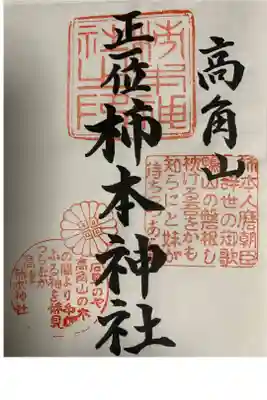 高角山
正一位柿本神社
柿本人麿朝臣
辞世の御歌
鴨山の磐根し
枕ける吾をかも
知らにと妹が
待ちつつあ
石見のや
高角山の木
の間より我が
ふる袖を妹見
つらむか
高津
柿本神社